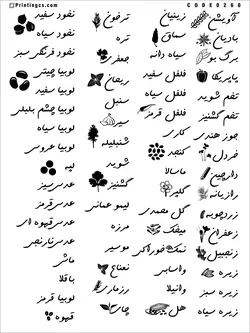 Printingcs.com
CODE0260
آویشن
بادیان
برگ بو
پاپریکا
تخم شوید
تخم گشنیز
جوز هندی
خردل
دارچین
رازیانه
زردچوبه
زعفران
زنجبیل
زیره سیاه
زیره سبز
زیره
زینیان
سماق
سیاه دانه
فلفل سفید
فلفل سیاه
فلفل قرمز
کاری
کنجد
ماسالا
گلپر
گل محمدی
میخک
نمک خوراکی
واسابی
وانیلا
هل
ترخون
تره
جعفری
ریحان
سنبل
سیر
شنبلیله
شوید
گشنیز
لیمو عمانی
مرزه
موسیر
نعناع
رزماری
چای
نخود سفید
نخود سیاه
نخود فرنگی سبز
لوبیا چیتی
لوبیا سفید
لوبیا چشم بلبلی
لوبیا سیاه
لوبیا عروسی
لپه
عدس سبز
عدس قرمز
عدس قهوه ای
عدس نارنجی
ماش
باقلا
لوبیا قرمز
قهوه